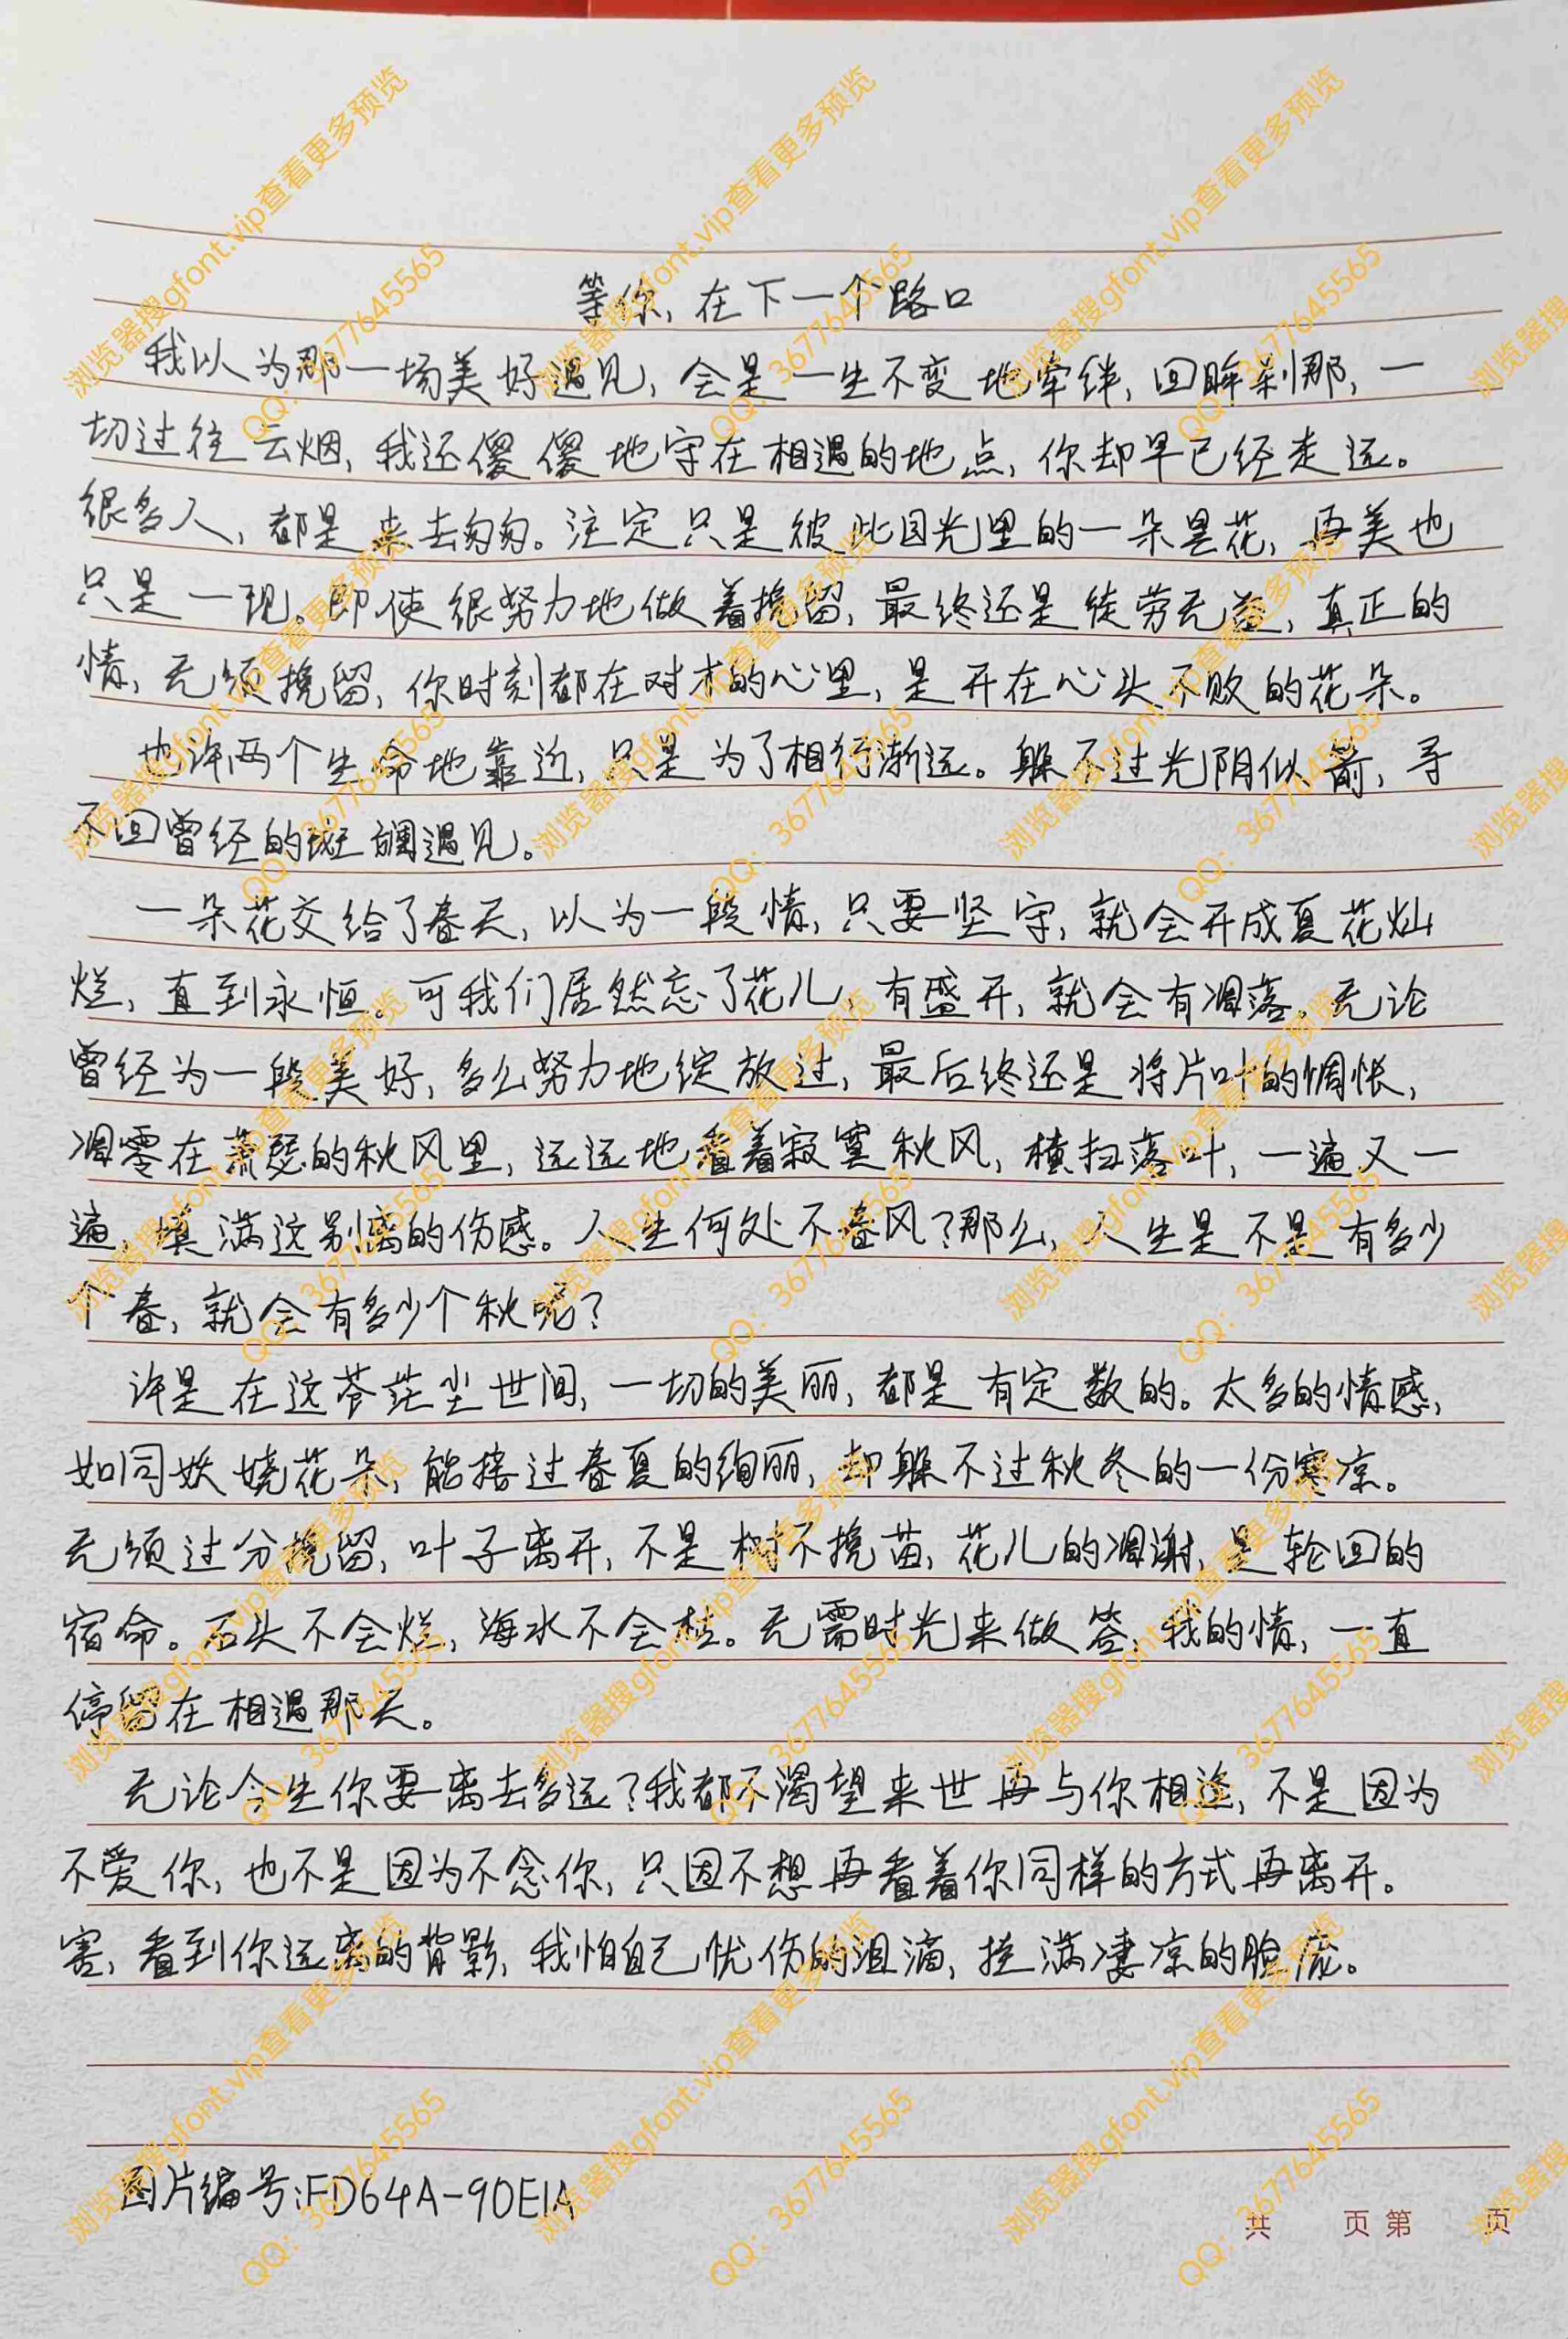 等你,在下一个路口
我以为那一场美好遇见,会是一生不变地牵绊,回眸刹那,一
切过往云烟,我还傻傻地守在相遇的地点,你却早已经走远。
很多人,都是来去匆匆。注定只是彼此目光里的一朵昙花,再美也
只是一现。即使很努力地做着挽留,最终还是徒劳无益,真正的
情,无须挽留,你时刻都在对才的心里,是开在心头不败的花朵。
也许两个生命地靠近,只是为了相行渐远。躲不过光阴似箭,寻
不回曾经的斑斓遇见。
一朵花交给了春天,以为一段情,只要坚守,就会开成夏花灿
烂,直到永恒。可我们居然忘了花儿,有盛开,就会有凋落。无论
曾经为一段美好,多么努力地绽放过,最后终还是将片叶的惆怅,
凋零在萧瑟的秋风里,远远地看着寂寞秋风,横扫落叶,一遍又一
遍,填满这别离的伤感。人生何处不春风?那么,人生是不是有多少
个春,就会有多少个秋呢?
许是在这苍茫尘世间,一切的美丽,都是有定数的。太多的情感,
如同妖娆花朵,能接过春夏的绚丽,却躲不过秋冬的一份寒凉。
无须过分挽留,叶子离开,不是树不挽苗,花儿的凋谢,是轮回的
宿命。石头不会烂,海水不会枯。无需时光来做答,我的情,一直
停留在相遇那天。
无论今生你要离去多远?我都不渴望来世再与你相逢,不是因为
不爱你,也不是因为不念你,只因不想再看着你同样的方式再离开。
害,看到你远离的背影,我怕自己忧伤的泪滴,挂满凄凉的脸庞。
图片编号:FD64A-90E1A
共 页 第 页
浏览器搜gfont.vip查看更多预览
QQ:3677645565